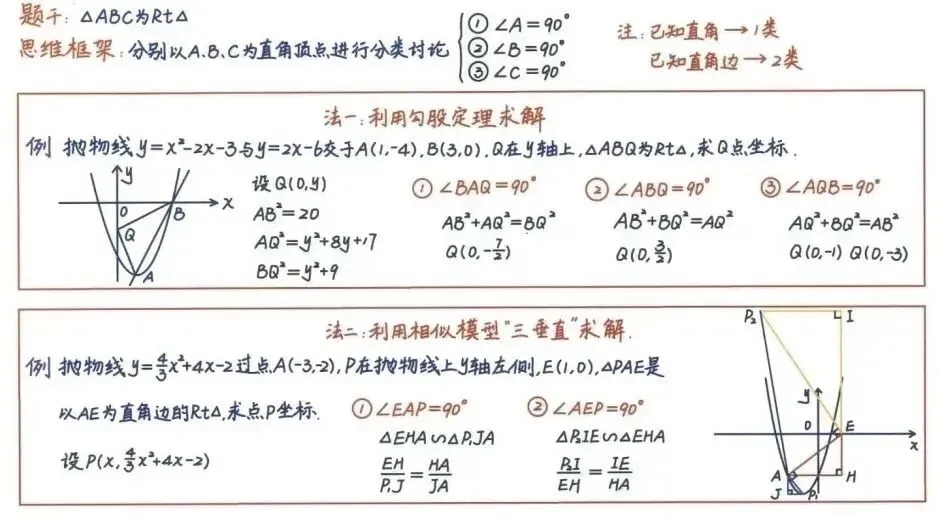 题干: △ABC为Rt△
思维框架: 分别以A.B.C为直角顶点进行分类讨论
① ∠A=90°
② ∠B=90°
③ ∠C=90°
注: 已知直角→1类
已知直角边→2类
法一: 利用勾股定理求解
例 抛物线y=x²-2x-3与y=2x-6交于A(1,-4), B(3,0), Q在y轴上, △ABQ为Rt△, 求Q点坐标.
y
O
B
x
Q
A
设Q(0,y)
AB²=20
AQ²=y²+8y+17
BQ²=y²+9
① ∠BAQ=90°
AB²+AQ²=BQ²
Q(0,-7/2)
② ∠ABQ=90°
AB²+BQ²=AQ²
Q(0,3/2)
③ ∠AQB=90°
AQ²+BQ²=AB²
Q(0,-1) Q(0,-3)
法二: 利用相似模型"三垂直"求解.
例 抛物线y=4/3x²+4x-2过点A(-3,-2), P在抛物线上y轴左侧, E(1,0), △PAE是
以AE为直角边的Rt△, 求点P坐标.
设P(x, 4/3x²+4x-2)
① ∠EAP=90°
△EHA∽△P₁JA
EH/P₁J=HA/JA
② ∠AEP=90°
△P₂IE∽△EHA
P₂I/EH=IE/HA
P₂
I
y
O
E
x
A
H
J
P₁